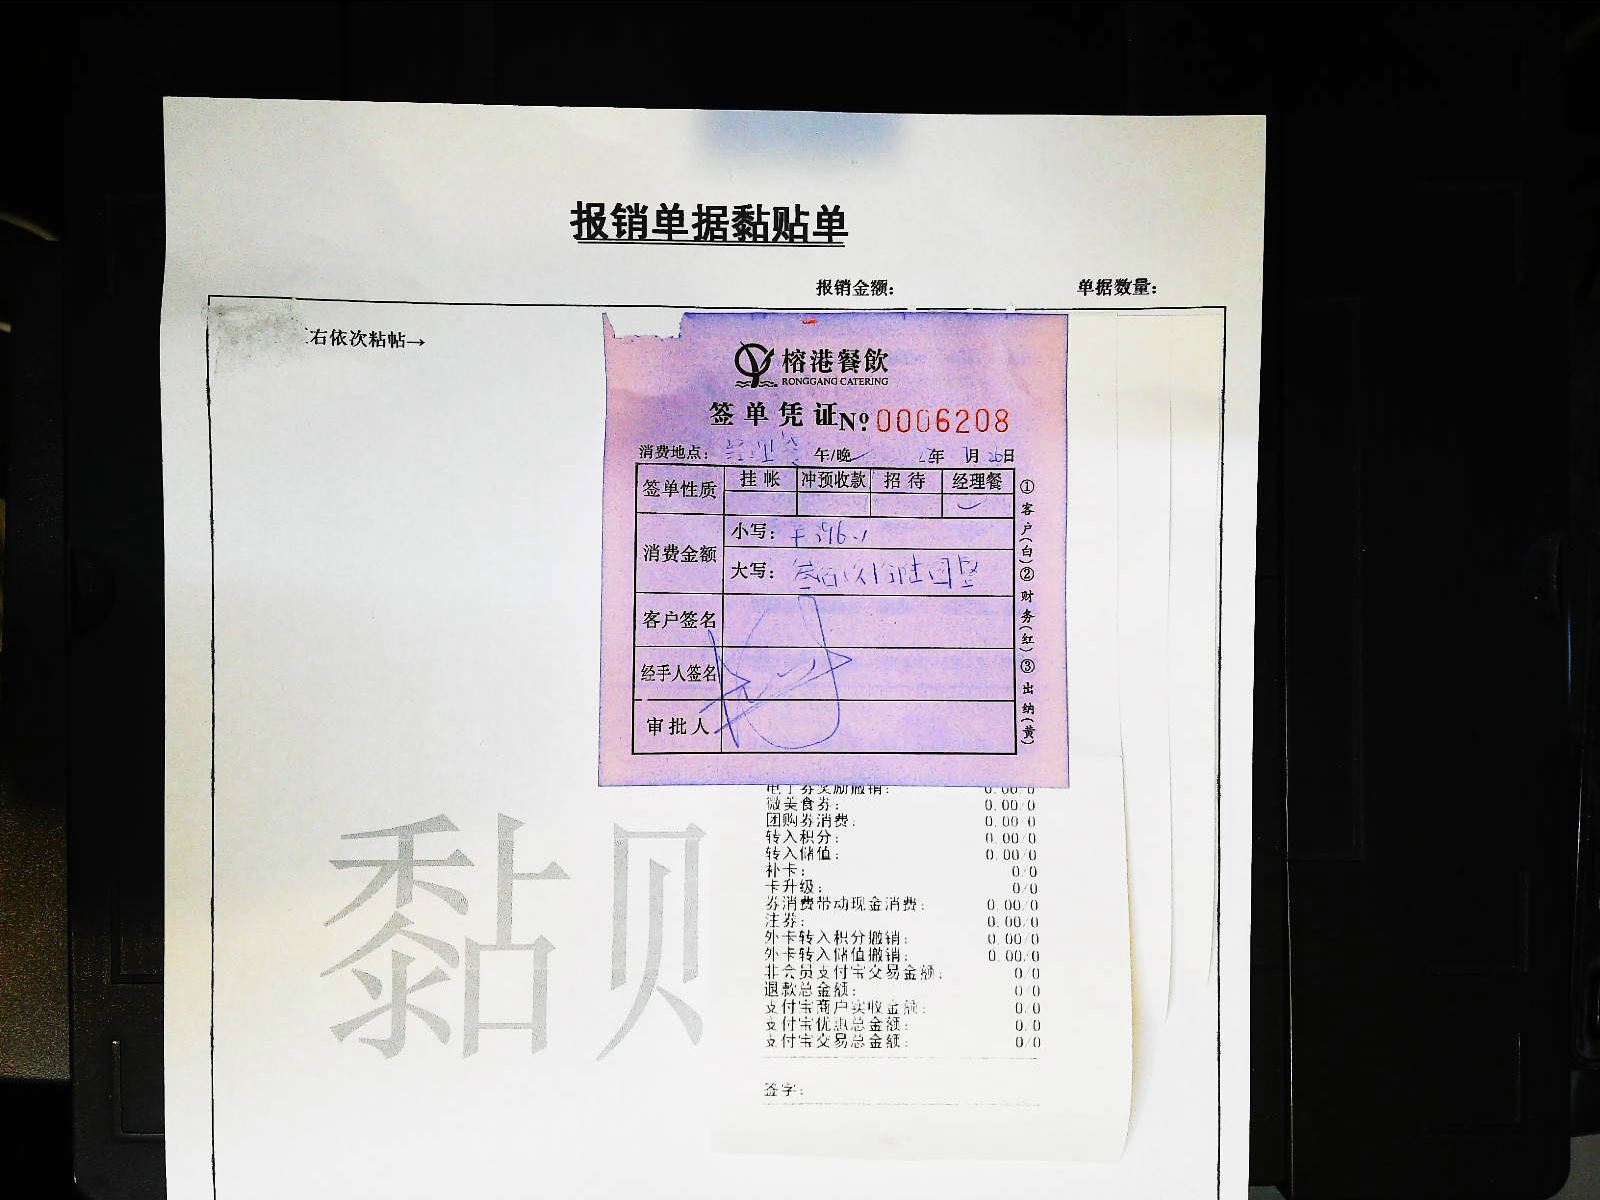 报销单据黏贴单
报销金额： 单据数量：
右依次粘帖→
榕港餐飲
RONGGANG CATERING
签单凭证 № 0006208
消费地点： 午/晚 年 月 日
签单性质 挂帐 冲预收款 招待 经理餐
消费金额 小写：
大写：
客户签名
经手人签名
审批人
①客户(白)②财务(红)③出纳(黄)
电子券奖励撤销： 0.00/0
微美食券： 0.00/0
团购券消费： 0.00/0
转入积分： 0.00/0
转入储值： 0.00/0
补卡： 0/0
卡升级： 0/0
券消费带动现金消费： 0.00/0
注券： 0.00/0
外卡转入积分撤销： 0.00/0
外卡转入储值撤销： 0.00/0
非会员支付宝交易金额： 0/0
退款总金额： 0/0
支付宝商户实收金额： 0/0
支付宝优惠总金额： 0/0
支付宝交易总金额： 0/0
签字：
黏贝